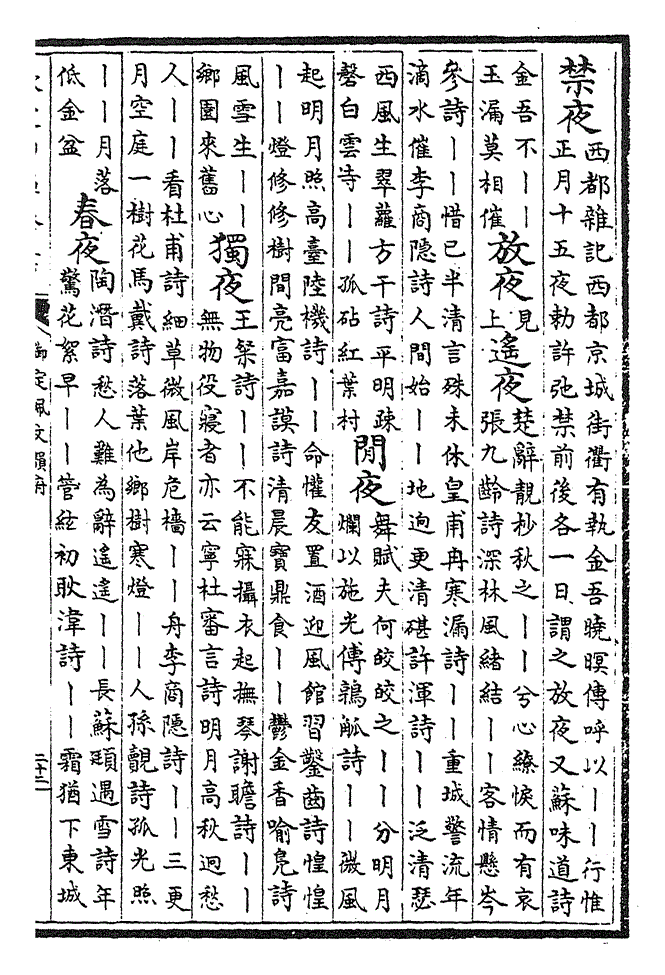 禁夜
西都雜記西都京城街衢有執金吾曉暝傳呼以丨丨行惟
正月十五夜勅許弛禁前後各一日謂之放夜又蘇味道詩
金吾不丨丨
玉漏莫相催
放夜
見
上
遙夜
楚辭靚杪秋之丨丨兮心繚悷而有哀
張九齡詩深林風緒結丨丨客情懸岑
參詩丨丨惜已半清言殊未休皇甫冉寒漏詩丨丨重城警流年
滴水催李商隱詩人間始丨丨地迥更清碪許渾詩丨丨泛清瑟
西風生翠蘿方干詩平明疎
磬白雲寺丨丨孤砧紅葉村
閒夜
舞賦夫何皎皎之丨丨分明月
爛以施光傅鶉觚詩丨丨微風
起明月照高臺陸機詩丨丨命懽友置酒迎風館習鑿齒詩惶惶
丨丨燈修修樹間亮富嘉謨詩清晨寶鼎食丨丨鬱金香喻鳧詩
風雪生丨丨
鄉園來舊心
獨夜
王粲詩丨丨不能寐攝衣起撫琴謝瞻詩丨丨
無物役寢者亦云寧杜審言詩明月高秋迥愁
人丨丨看杜甫詩細草微風岸危檣丨丨舟李商隱詩丨丨三更
月空庭一樹花馬戴詩落葉他鄉樹寒燈丨丨人孫覿詩孤光照
丨丨月落
低金盆
春夜
陶潛詩愁人難為辭遙遙丨丨長蘇頲遇雪詩年
驚花絮早丨丨管絃初耿湋詩丨丨霜猶下東城
御定佩文韻府